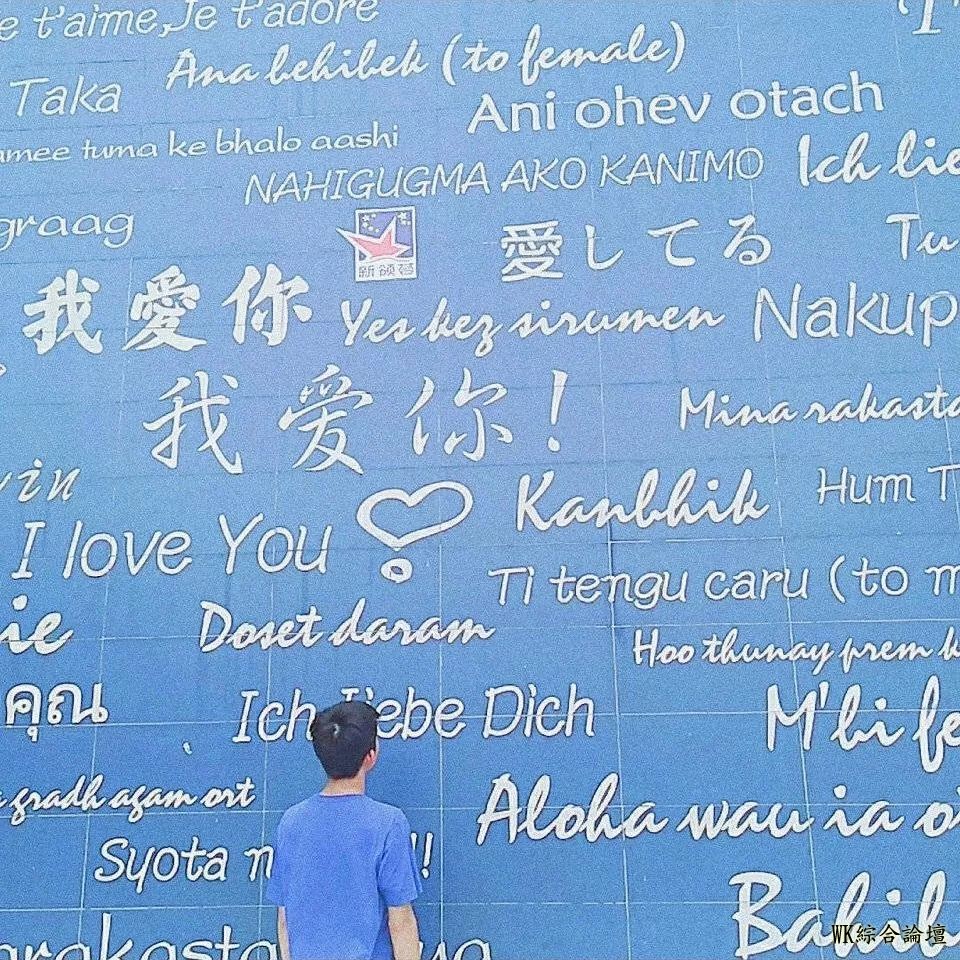 je t'aime,Je t'adore
Ana behibek (to female)
Taka
Ani ohev otach
amee tuma ke bhalo aashi
NAHIGUGMA AKO KANIMO
Ich lie
graag
新领荟
愛してる
Tu
我愛你
Yes kez sirumen
Nakup
我爱你!
Mina rakasta
vin
Kanbhik
Hum T
I love You
Ti tengu caru (to m
ie
Doset daram
Hoo thunay prem k
คุณ
Ich liebe Dich
M'bi fe
a gradh agam ort
Aloha wau ia o
Syota n !!
Bahib
arakasta ua
WK綜合論壇